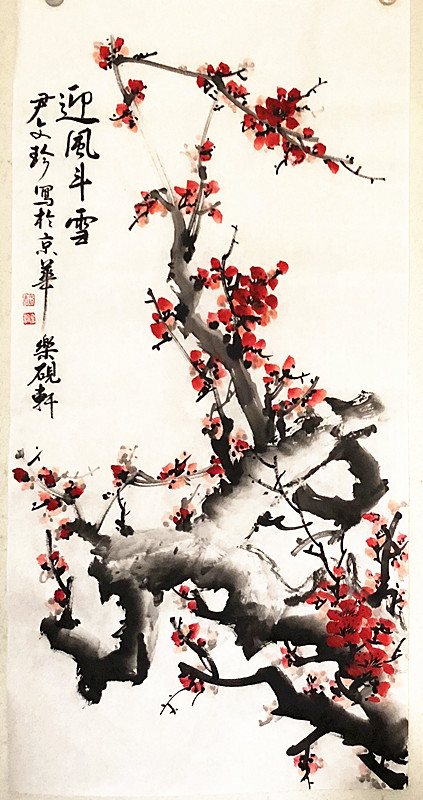 迎風斗雪
尹文珍寫於京華 樂硯軒